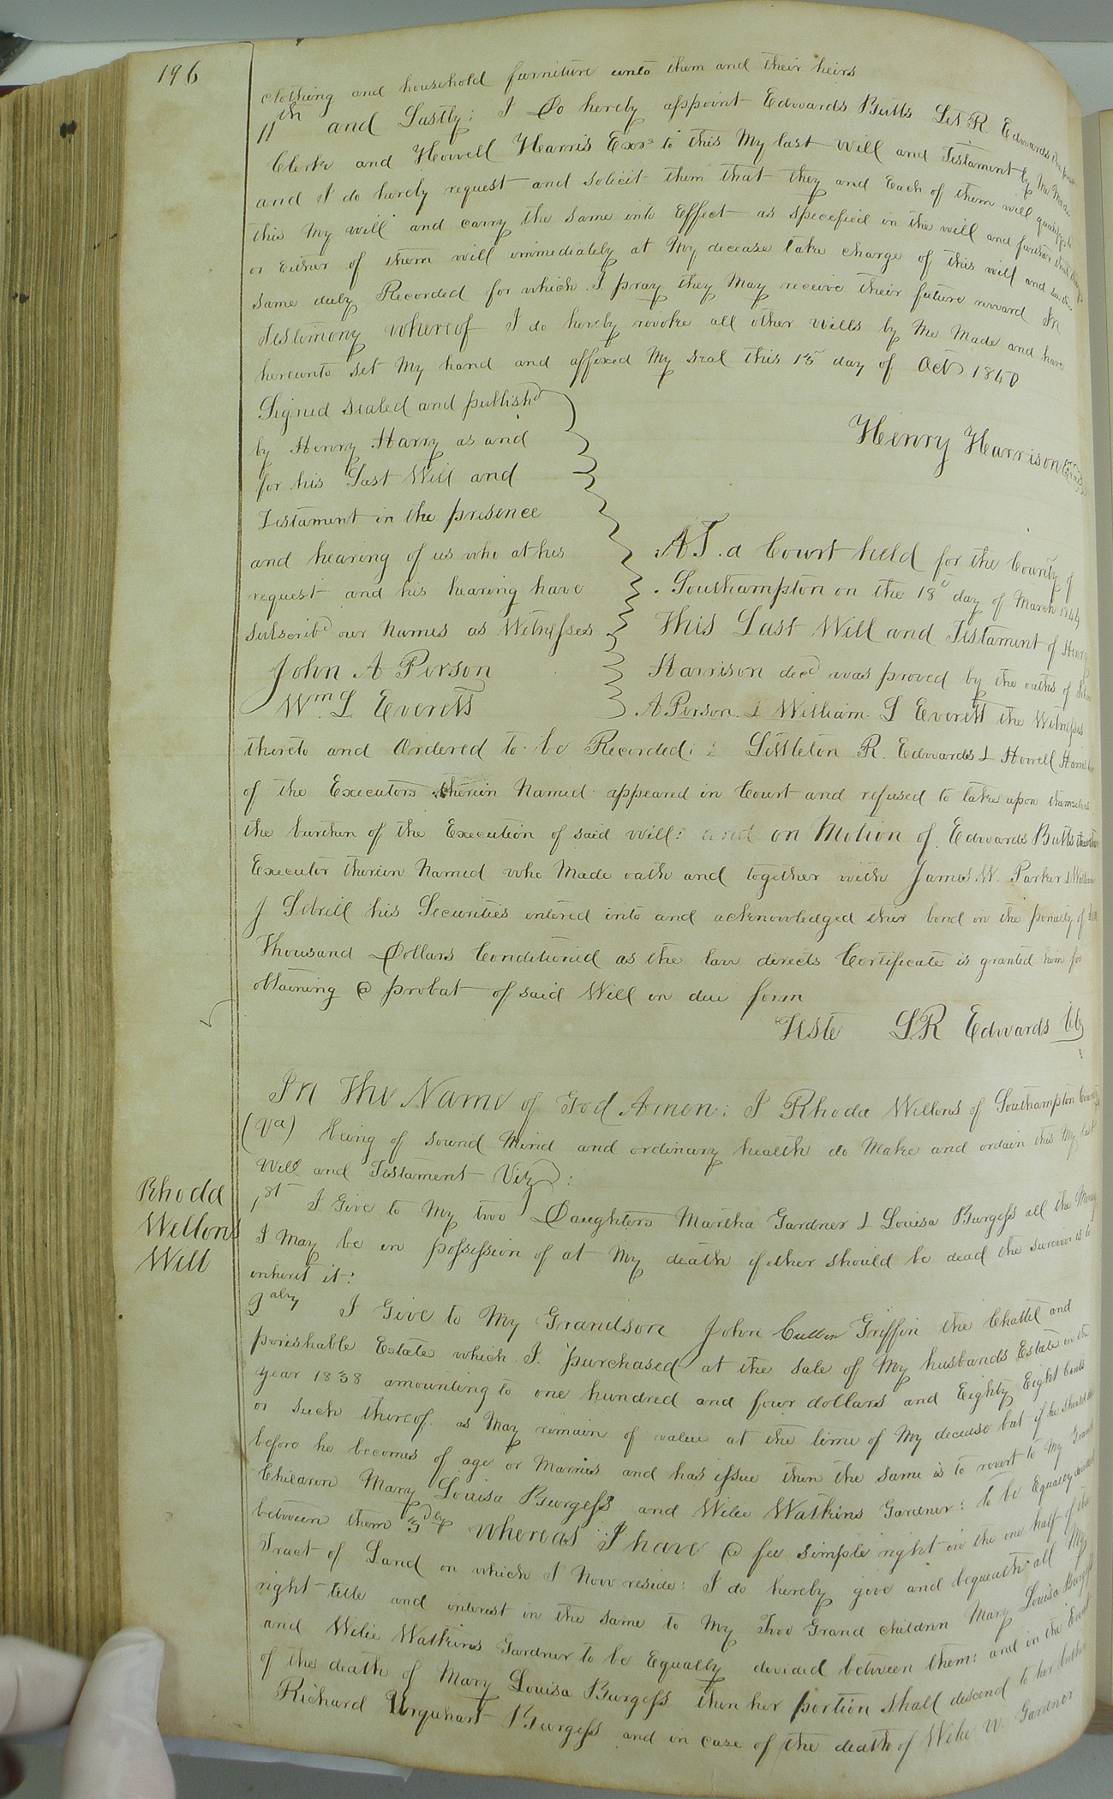 196
clothing and household furniture unto them and their heirs
11th and Lastly: I Do hereby appoint Edwards Butts Lit R Edwards the present
Clerk and Howell Harris Exors to this My last Will and Testament by Me Made
and I do hereby request and solicit them that they and Each of them will qualify to
this My will and carry the same into Effect as specefied in the will and further that they
or Either of them will immediately at My decease take charge of this will and
same duly Recorded for which I pray they May receive their future reward In
Testimony whereof I do hereby revoke all other wills by Me Made and have
hereunto set My hand and affixed My seal this 15 day of Oct 1840
Henry Harrison
Signed sealed and publishd
by Henry Harry as and
for his Last Will and
Testament in the presence
and hearing of us who at his
request and his hearing have
subscribd our Names as Witnesses
John A Person
Wm L Everett
AT a Court held for the County of
Southampton on the 18th day of March 1844
This Last Will and Testament of Henry
Harrison decd was proved by the oaths of John
A Person & William L Everett the Witnesses
thereto and Ordered to be Recorded: & Littleton R. Edwards & Howell Harris
of the Executors therein Named appeared in Court and refused to take upon themselves
the burthen of the Execution of said will: and on Motion of Edwards Butts the other
Executor therein Named who Made oath and together with James W. Parker & William
J Sebrell his Securities entered into and acknowledged their bond in the penalty of
Thousand Dollars Conditioned as the law directs Certificate is granted him for
obtaining @ probat of said Will in due form
Teste L R Edwards Clk
In The Name of God Amen: I Rhoda Wellons of Southampton County
(Va) being of sound Mind and ordinary health do Make and ordain this My last
Will and Testament Viz:
1st I Give to My two Daughters Martha Gardner & Louisa Burgess all the Money
I May be in possession of at My death if ether should be dead the survivor is to
inherit it:
Rhoda
Wellons
Will
2ndly I Give to My Grandson John Cullin Griffin the Chattel and
perishable Estate which I purchased at the sale of My husbands Estate in the
year 1838 amounting to one hundred and four dollars and Eighty Eight Cents
or such thereof as May remain of value at the time of My decease but if he should die
before he becomes of age or Marries and has issue then the same is to revert to My Grand
Children Mary Louisa Burgess and Wilie Watkins Gardner: to be Equally divided
between them 3dly Whereas I have @ fee simple right in the one half of the
Tract of Land on which I Now reside: I do hereby give and bequeath all My
right title and interest in the same to My Two Grand children Mary Louisa Burgess
and Wilie Watkins Gardner to be Equally devided between them: and in the Event
of the death of Mary Louisa Burgess then her portion shall descend to her brother
Richard Urquhart Burgess and in case of the death of Wilie W. Gardner